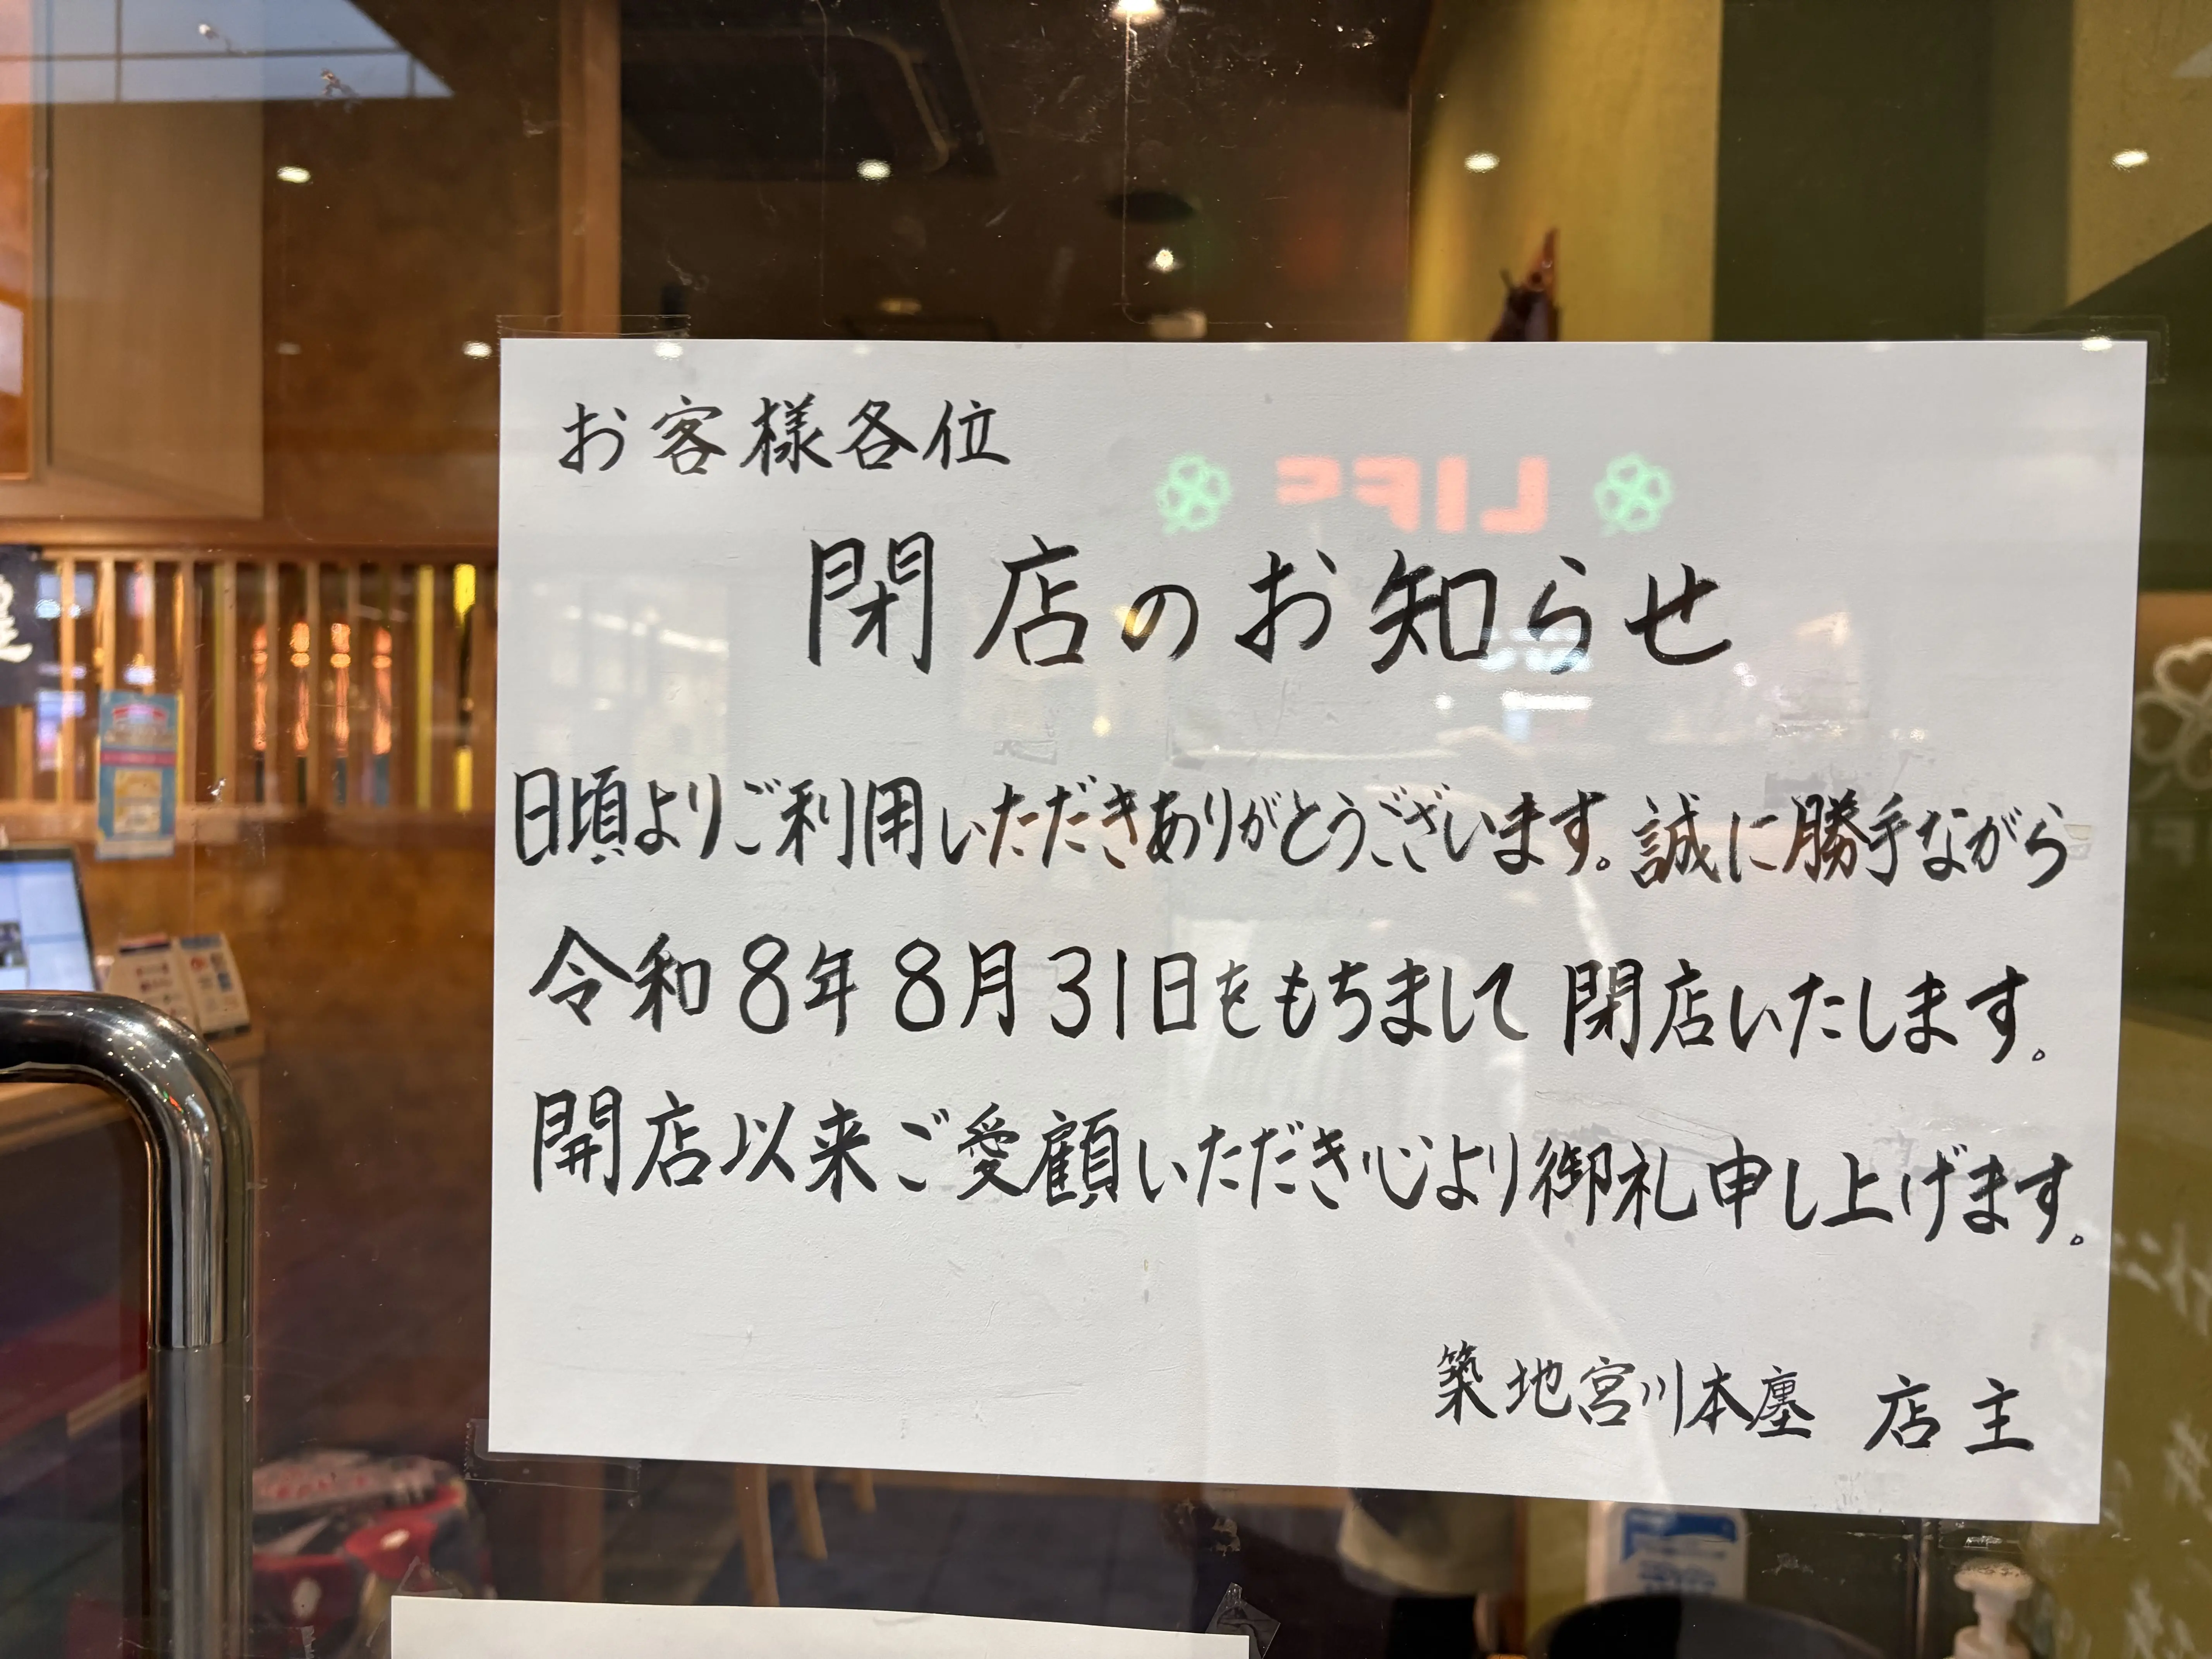 お客様各位
LIFE
閉店のお知らせ
日頃よりご利用いただきありがとうございます。誠に勝手ながら
令和8年8月31日をもちまして閉店いたします。
開店以来ご愛顧いただき心より御礼申し上げます。
築地宮川本廛 店主